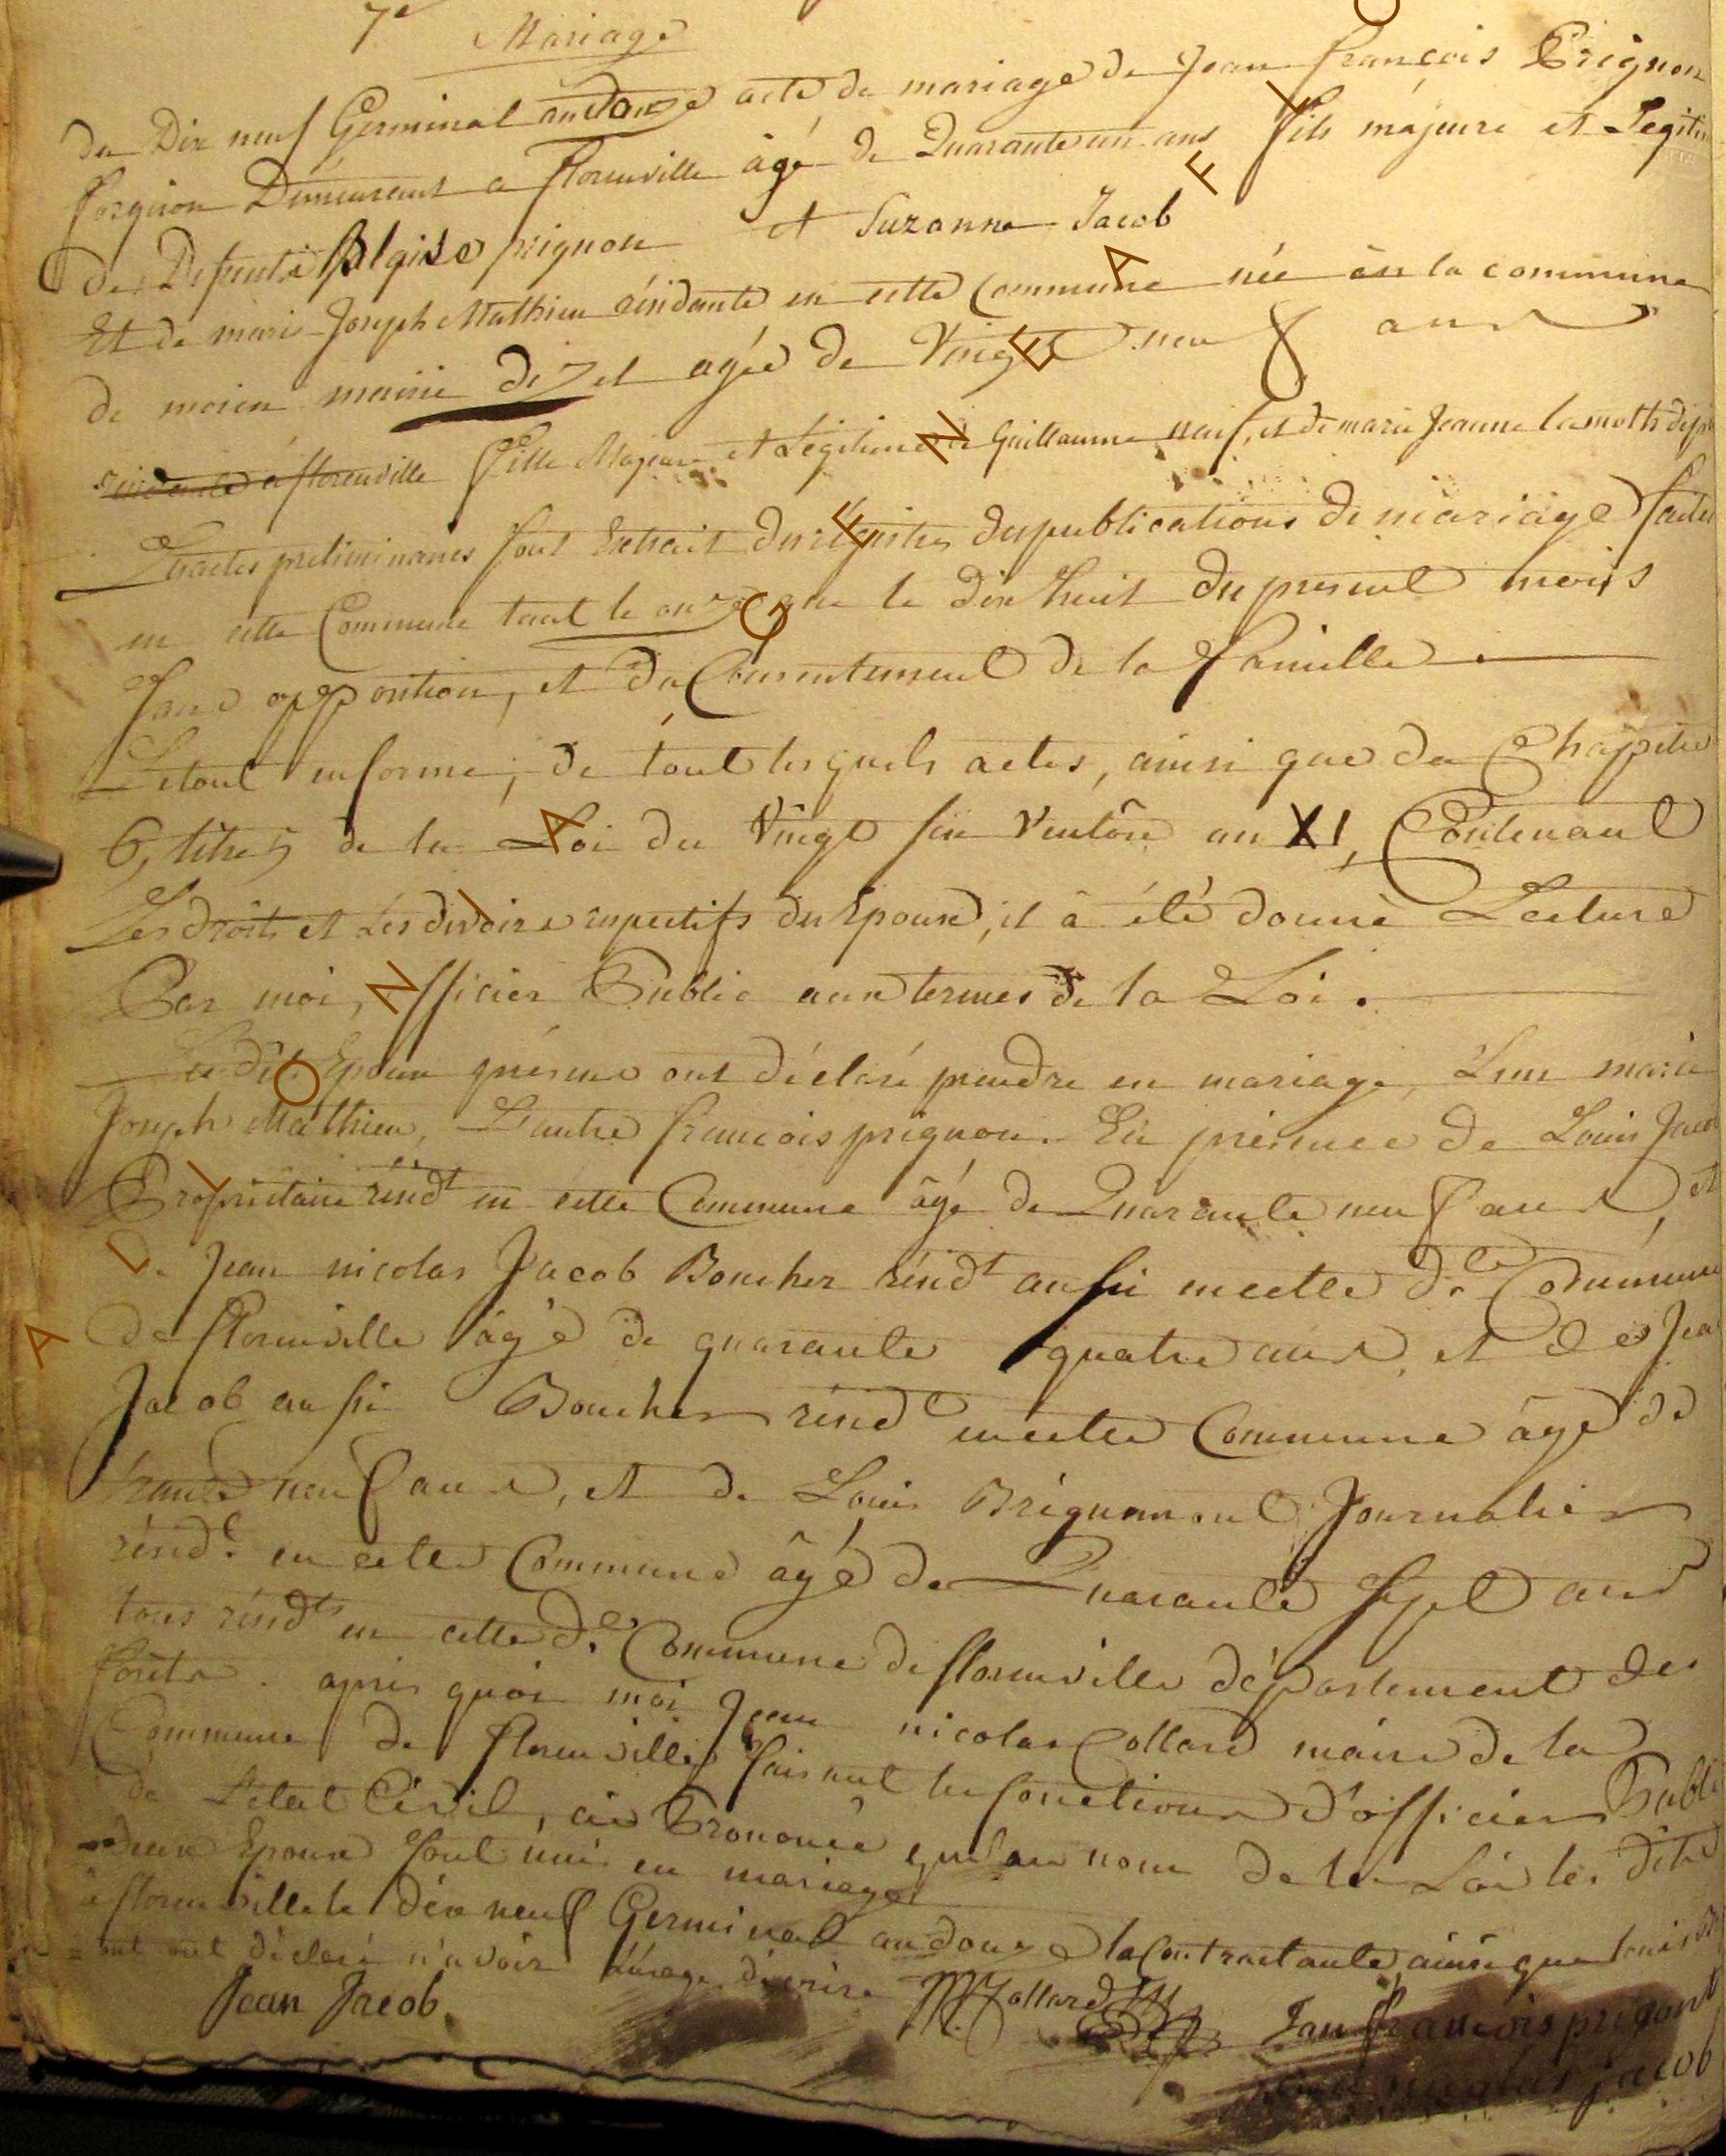 7e Mariage
du Dix neuf Germinal an Douze acte de mariage de Jean françois Prignon
forgeron Demeurant a florenville âgé de Quarante un ans fils majeure et Legiti
de Defunts Blaise prignon et Suzanne Jacob
Et de marie Joseph Mathieu résidante en cette Commune née en la commune
de moien mairie dizel agée de Vingt neuf ans
résidante a florenville fille Majeure et Légitime de Guillaume et de marie Jeanne lamotte
Les actes preliminaires sont Extrait des régistres des publications de mariage faites
en cette Commune tant le onze que le dix huit du present mois
sans opposition, et du Consentement de la famille
Le tout en forme, de tout lesquels actes, ainsi que du Chapitre
6, titre 5 de la Loi du Vingt six Ventôse an XI, Contenant
Les droits et Les devoirs respectifs des Epoux, il à été donné Lecture
Par moi, officier Public aux termes de la Loi.
Les dits Epoux présens ont déclaré prendre en mariage, L'un marie
Joseph Mathieu, L'autre francois prignon. En présence de Louis Jacob
Propriétaire résidt en cette Commune âgé de Quarante neuf ans, et
De Jean nicolas Jacob Boucher résidt aussi en cette de Commune
de florenville âgé de quarante quatre ans, et de Jea
Jacob aussi Boucher résidt en cette Commune âgé de
trente neuf ans, et de Louis Journalier
résidt en cette Commune âgé de Quarante Sept ans
tous résidts en cette de Commune de florenville département des
forêts. après quoi moi Jean nicolas Collard maire de la
Commune de florenville faisant les fonctions d'officier Publi
de L'etat Civil, ai Prononcé qu'au nom de la Loi les dits
deux Epoux sont unis en mariage
à florenville le dix neuf Germinal an douze la Contractante ainsi que louis
ont déclaré n'avoir L'usage d'ecrire
Jean Jacob. Collard Jan françois prignont
nicolas jacob
ALIONIAGENEAFIC